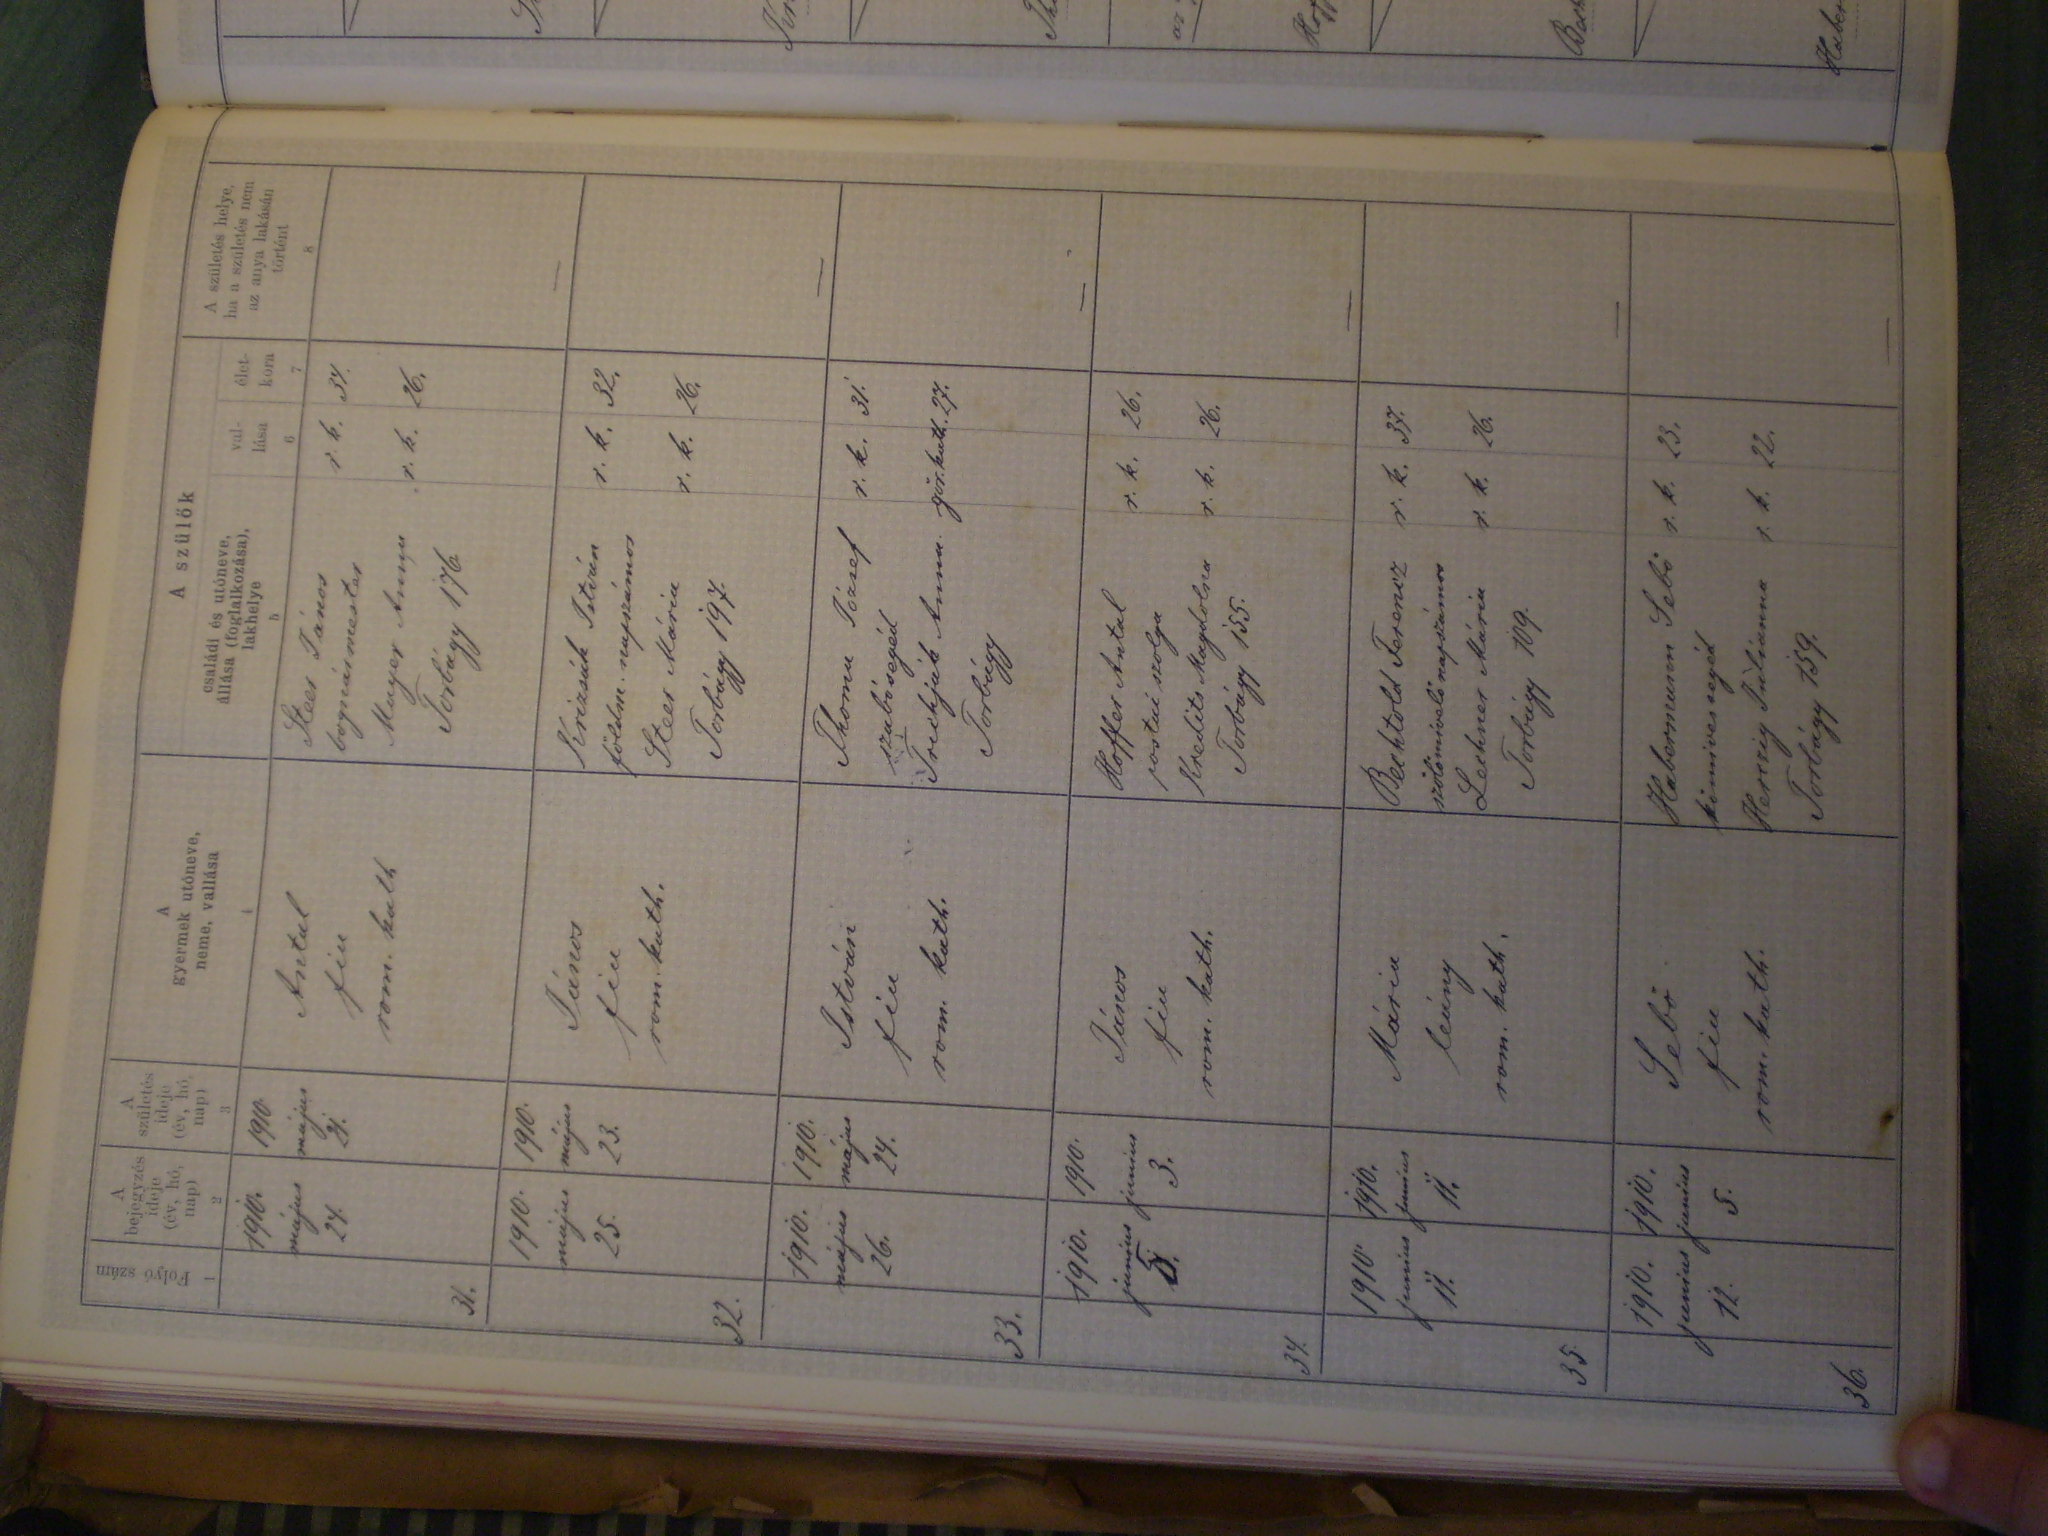 Folyó szám
1
A
bejegyzés
ideje
(év, hó,
nap)
2
A
születés
ideje
(év, hó,
nap)
3
A
gyermek utóneve,
neme, vallása
4
A szülők
családi és utóneve,
állása (foglalkozása),
lakhelye
5
val-
lása
6
élet-
kora
7
A születés helye,
ha a születés nem
az anya lakásán
történt
8
31.
1910.
május
24.
1910.
május
21.
Antal
fiu
rom. kath
Stees János
bognármester
r. k. 34.
Mayer Anna
r. k. 26.
Torbágy 176
32.
1910.
május
25.
1910.
május
23.
János
fiu
rom. kath.
Krizsák István
földm. napszámos
r. k. 32.
Stees Mária
r. k. 26.
Torbágy 197.
33.
1910.
május
26.
1910.
május
24.
István
fiu
rom. kath.
Thoma József
szabósegéd
r. k. 31.
Trechják Anna
gör. kath. 27.
Torbágy
34.
1910.
junius
5.
1910.
junius
3.
János
fiu
rom. kath.
Hoffer Antal
postai szolga
r. k. 26.
Kredits Magdolna
r. k. 26.
Torbágy 155.
35.
1910.
junius
11.
1910.
junius
11.
Mária
leány
rom. kath.
Bechtold Ferencz
szölömivelö napszámos
r. k. 37.
Lechner Mária
r. k. 26.
Torbágy 109.
36.
1910.
junius
12.
1910.
junius
5.
Sebö
fiu
rom. kath.
Habermann Sebö
kömivessegéd
r. k. 23.
Herczig Julianna
r. k. 22.
Torbágy 159.